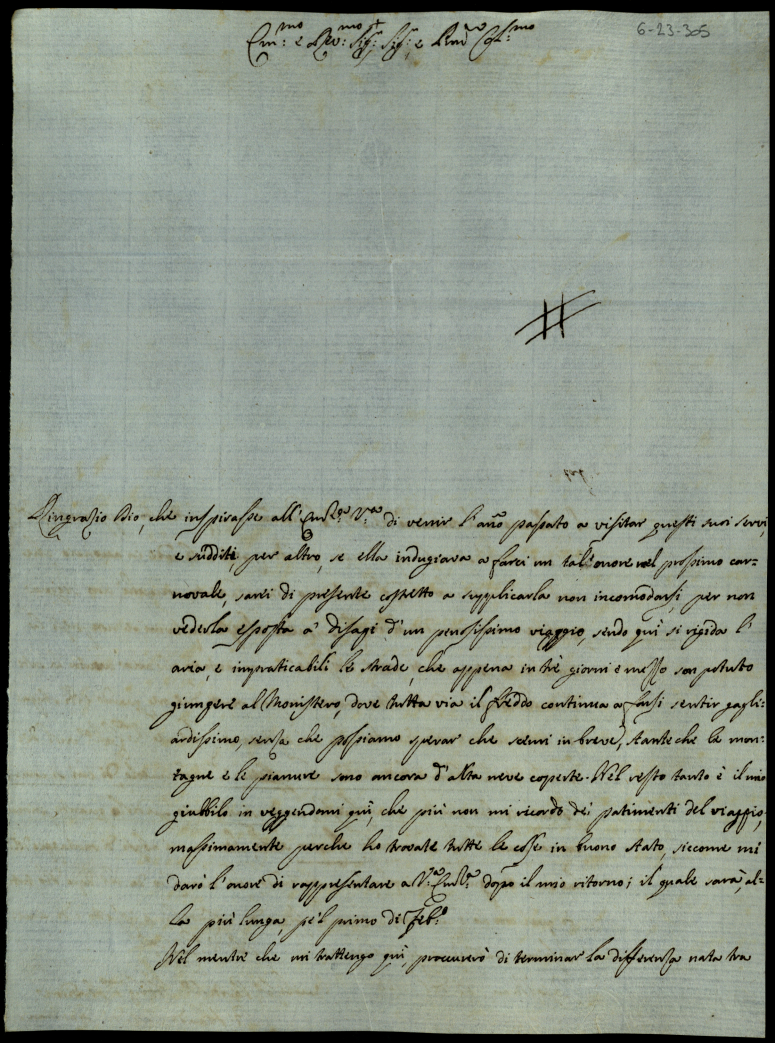 6-23-305
Em:mo e Rev:mo Sig:r Sig:r e
Ringrazio Dio, che inspirasse all'Em:za V:ra di venir l'año passato a visitar questi suoi servi,
e sudditi, per altro, se ella indugiava a farci un tal'onore nel prossimo car=
novale, sarei di presente costretto a supplicarla non incomodarsi, per non
vederla esposta a' disagi d'un penosissimo viaggio, sendo quì sì rigida l'
aria, e impraticabili le strade, che appena in trè giorni e mezzo son potuto
giungere al Monistero, dove tutta via il freddo continua a farsi sentir gagli=
ardissimo, senza che possiamo sperar che scemi in breve, stante che le mon=
tagne e le pianure sono ancora d'alta neve coperte. Nel resto tanto è il mio
giubbilo in veggendomi quì, che più non mi ricordo dei patimenti del viaggio,
massimamente perche ho trovate tutte le cose in buono stato, siccome mi
darò l'onore di rappresentare a V:ra Em:za dopo il mio ritorno; il quale sarà, al=
la più lunga, pe'l primo di Feb:o
Nel mentre che mi trattengo quì, procurerò di terminar la differenza nata tra